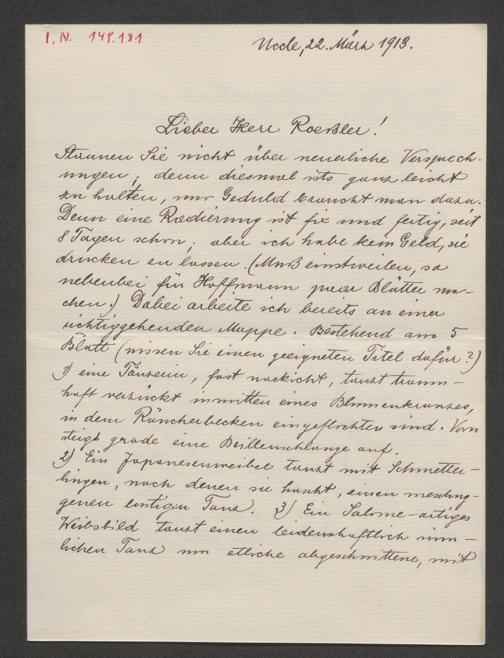 I. N. 149.181
Uccle, 22. März 1913.
Lieber Herr Roessler!
Staunen Sie nicht über neuerliche Versprech-
ungen; denn diesmal ists ganz leicht
zu halten, nur Geduld braucht man dazu.
Denn eine Radierung ist fix und fertig, seit
8 Tagen schon; aber ich habe kein Geld, sie
drucken zu lassen. (Muß einstweilen, so
nebenbei für Hoffmann paar Blätter ma-
chen.) Dabei arbeite ich bereits an einer
richtiggehenden Mappe. Bestehend aus 5
Blatt (wissen Sie einen geeigneten Titel dafür?)
1) eine Tänzerin, fast nackicht, tanzt traum-
haft verzückt inmitten eines Blumenkranzes,
in dem Räucherbecken eingeflochten sind. Vorn
steigt grade eine Brillenschlange auf.
2) Ein Japanesenweibel tanzt mit Schmetter-
lingen, nach denen sie hascht, einen
genen lustigen Tanz. 3) Ein Salome-artiges
Weibsbild tanzt einen leidenschaftlich sinn-
lichen Tanz um etliche abgeschnittene, mit